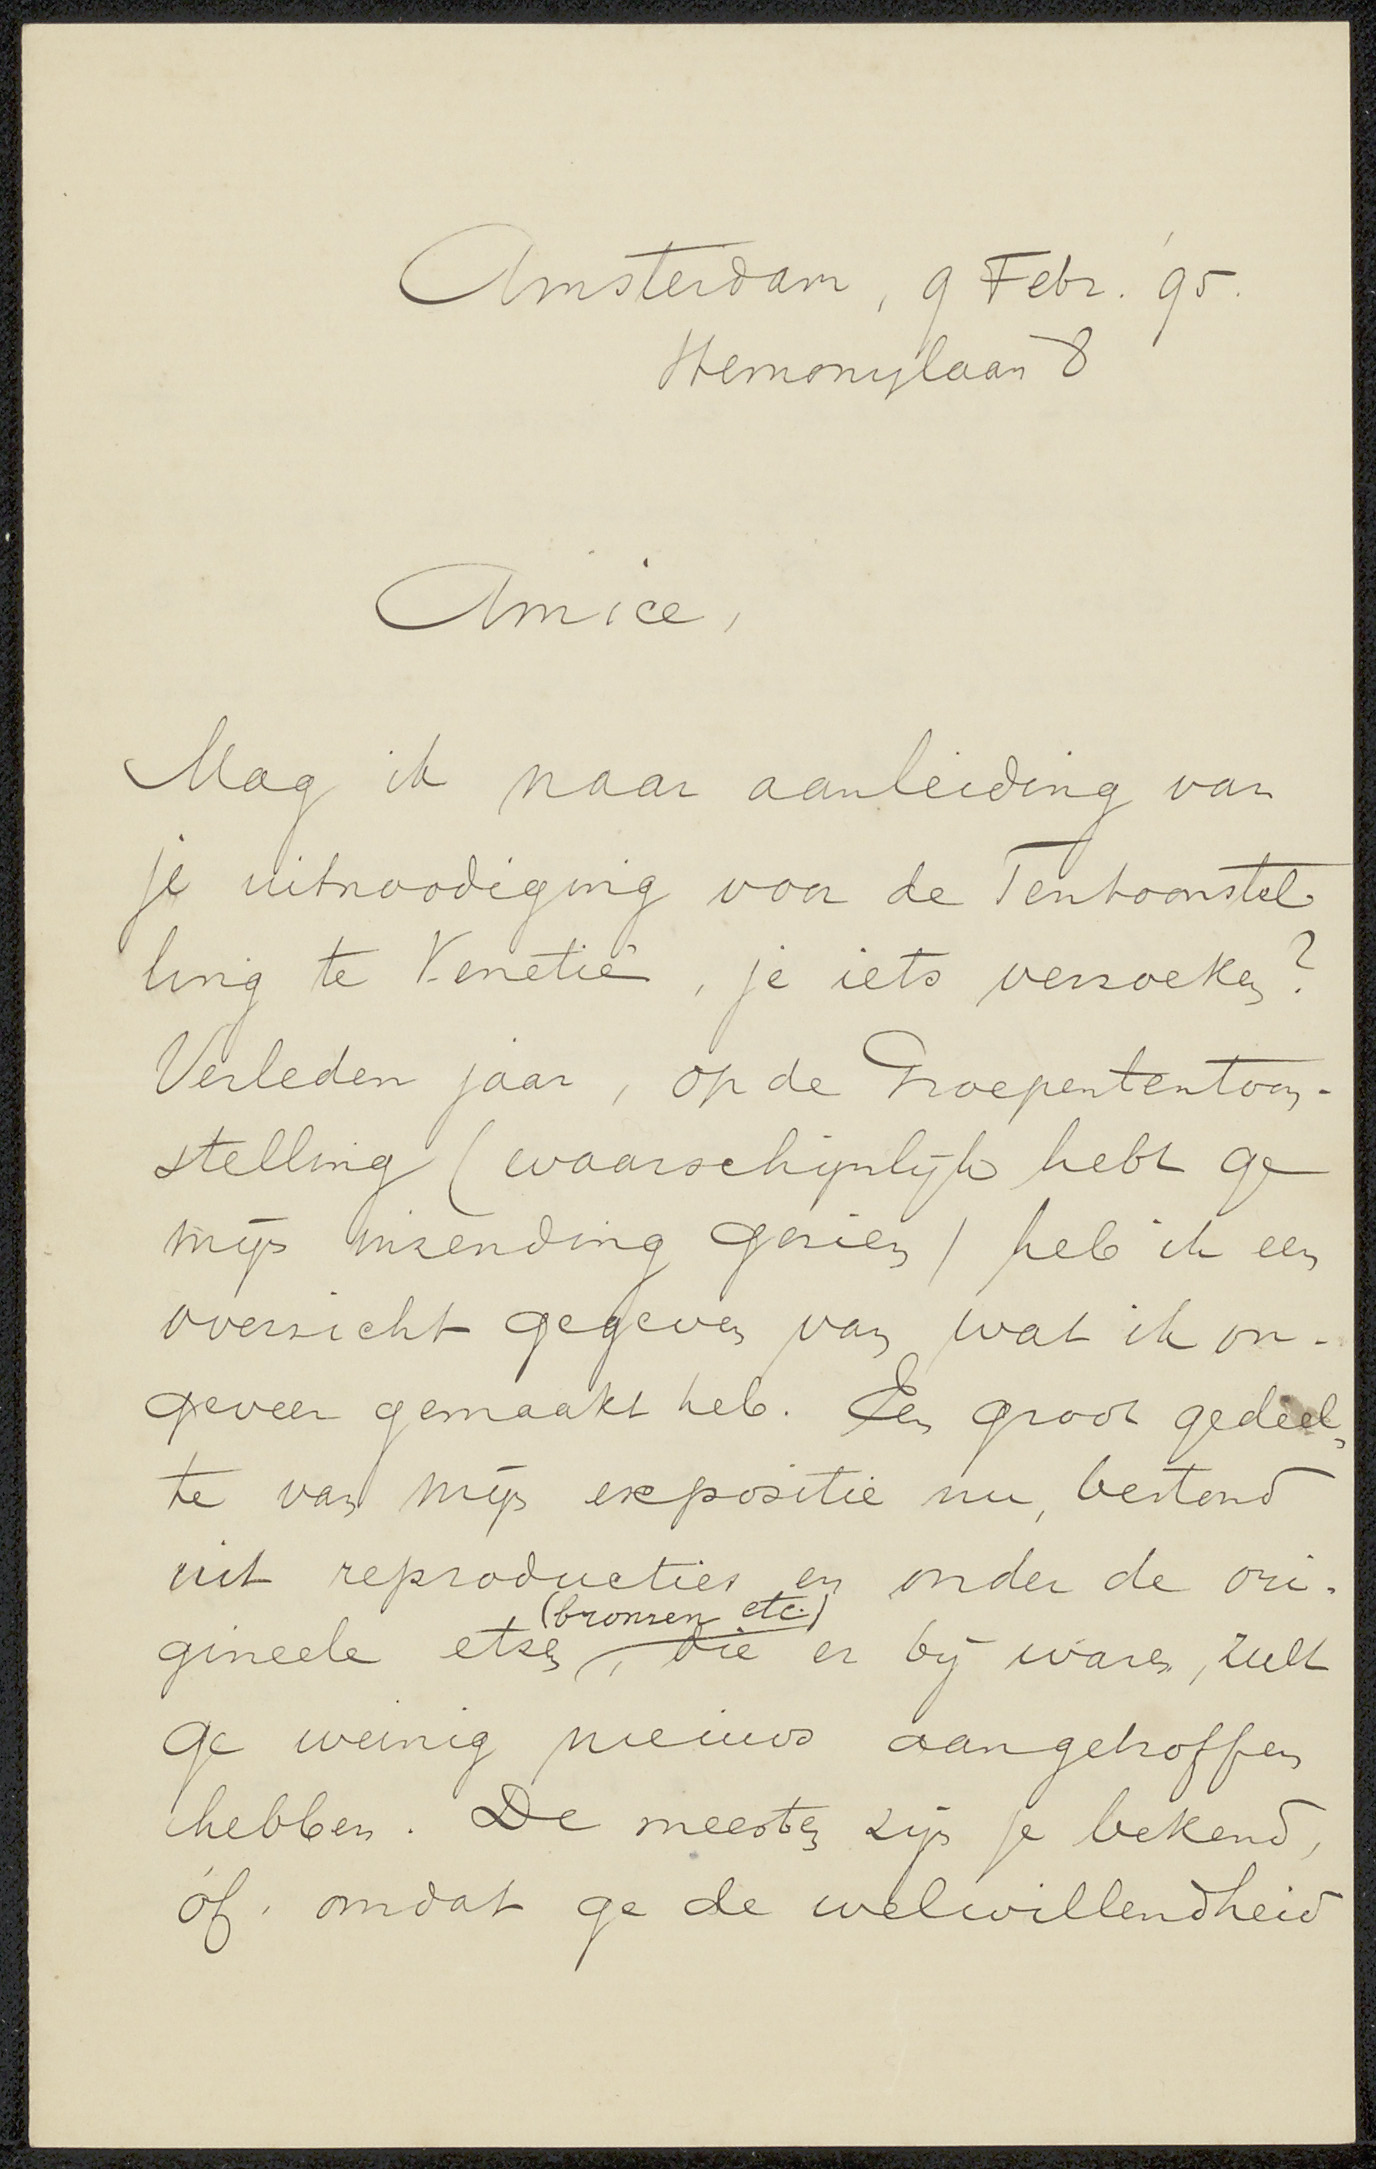 Amsterdam, 9 Febr. '95.
Hemonylaan 8
Amice,
Mag ik naar aanleiding van
je uitnoodiging voor de Tentoonstel-
ling te Venetië, je iets verzoeken?
Verleden jaar, op de Groepententoon-
stelling (waarschijnlijk hebt ge
mijn inzending gezien) heb ik een
overzicht gegeven van wat ik on-
geveer gemaakt heb. Een groot gedeel-
te van mijn expositie nu, bestond
uit reproducties en onder de ori-
(bronzen etc.)
gineele etsen, die er bij waren, zult
ge weinig nieuws aangetroffen
hebben. De meesten zijn je bekend,
óf. omdat ge de welwillendheid